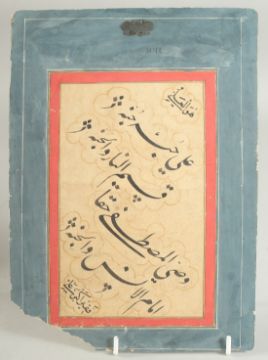 هو العلي
علي حبه جنة
قسيم النار والجنة
وصي المصطفى حقا
امام الانس والجنة